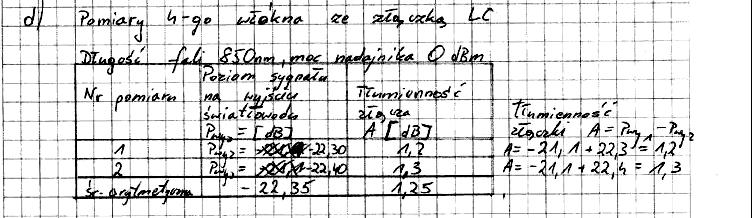 d) Pomiary 4-go włókna ze złączką LC
Długość fali 850nm, moc nadajnika 0 dBm
Nr pomiaru
Poziom sygnału
na wyjściu
światłowodu
Pwy2 = [dB]
Tłumienność
złącza
A [dB]
1 Pwy2 = -22,30 1,2
2 Pwy2 = -22,40 1,3
śr. arytmetyczna -22,35 1,25
Tłumienność
złączki A = Pwy1 - Pwy2
A = -21,1 + 22,3 = 1,2
A = -21,1 + 22,4 = 1,3